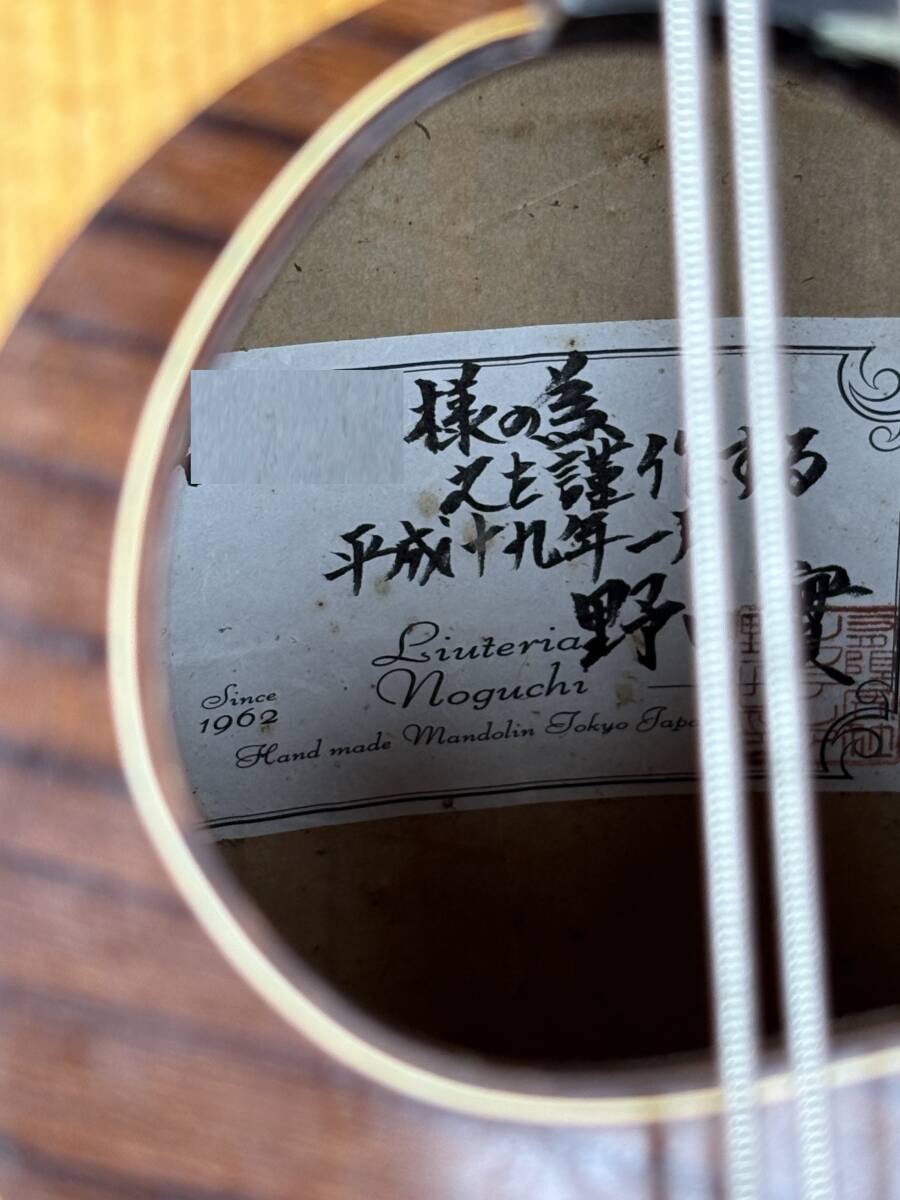 様の為
之を謹作する
平成十九年一月
野口實
Liuteria
Noguchi
Since
1962
Hand made Mandolin Tokyo Japa